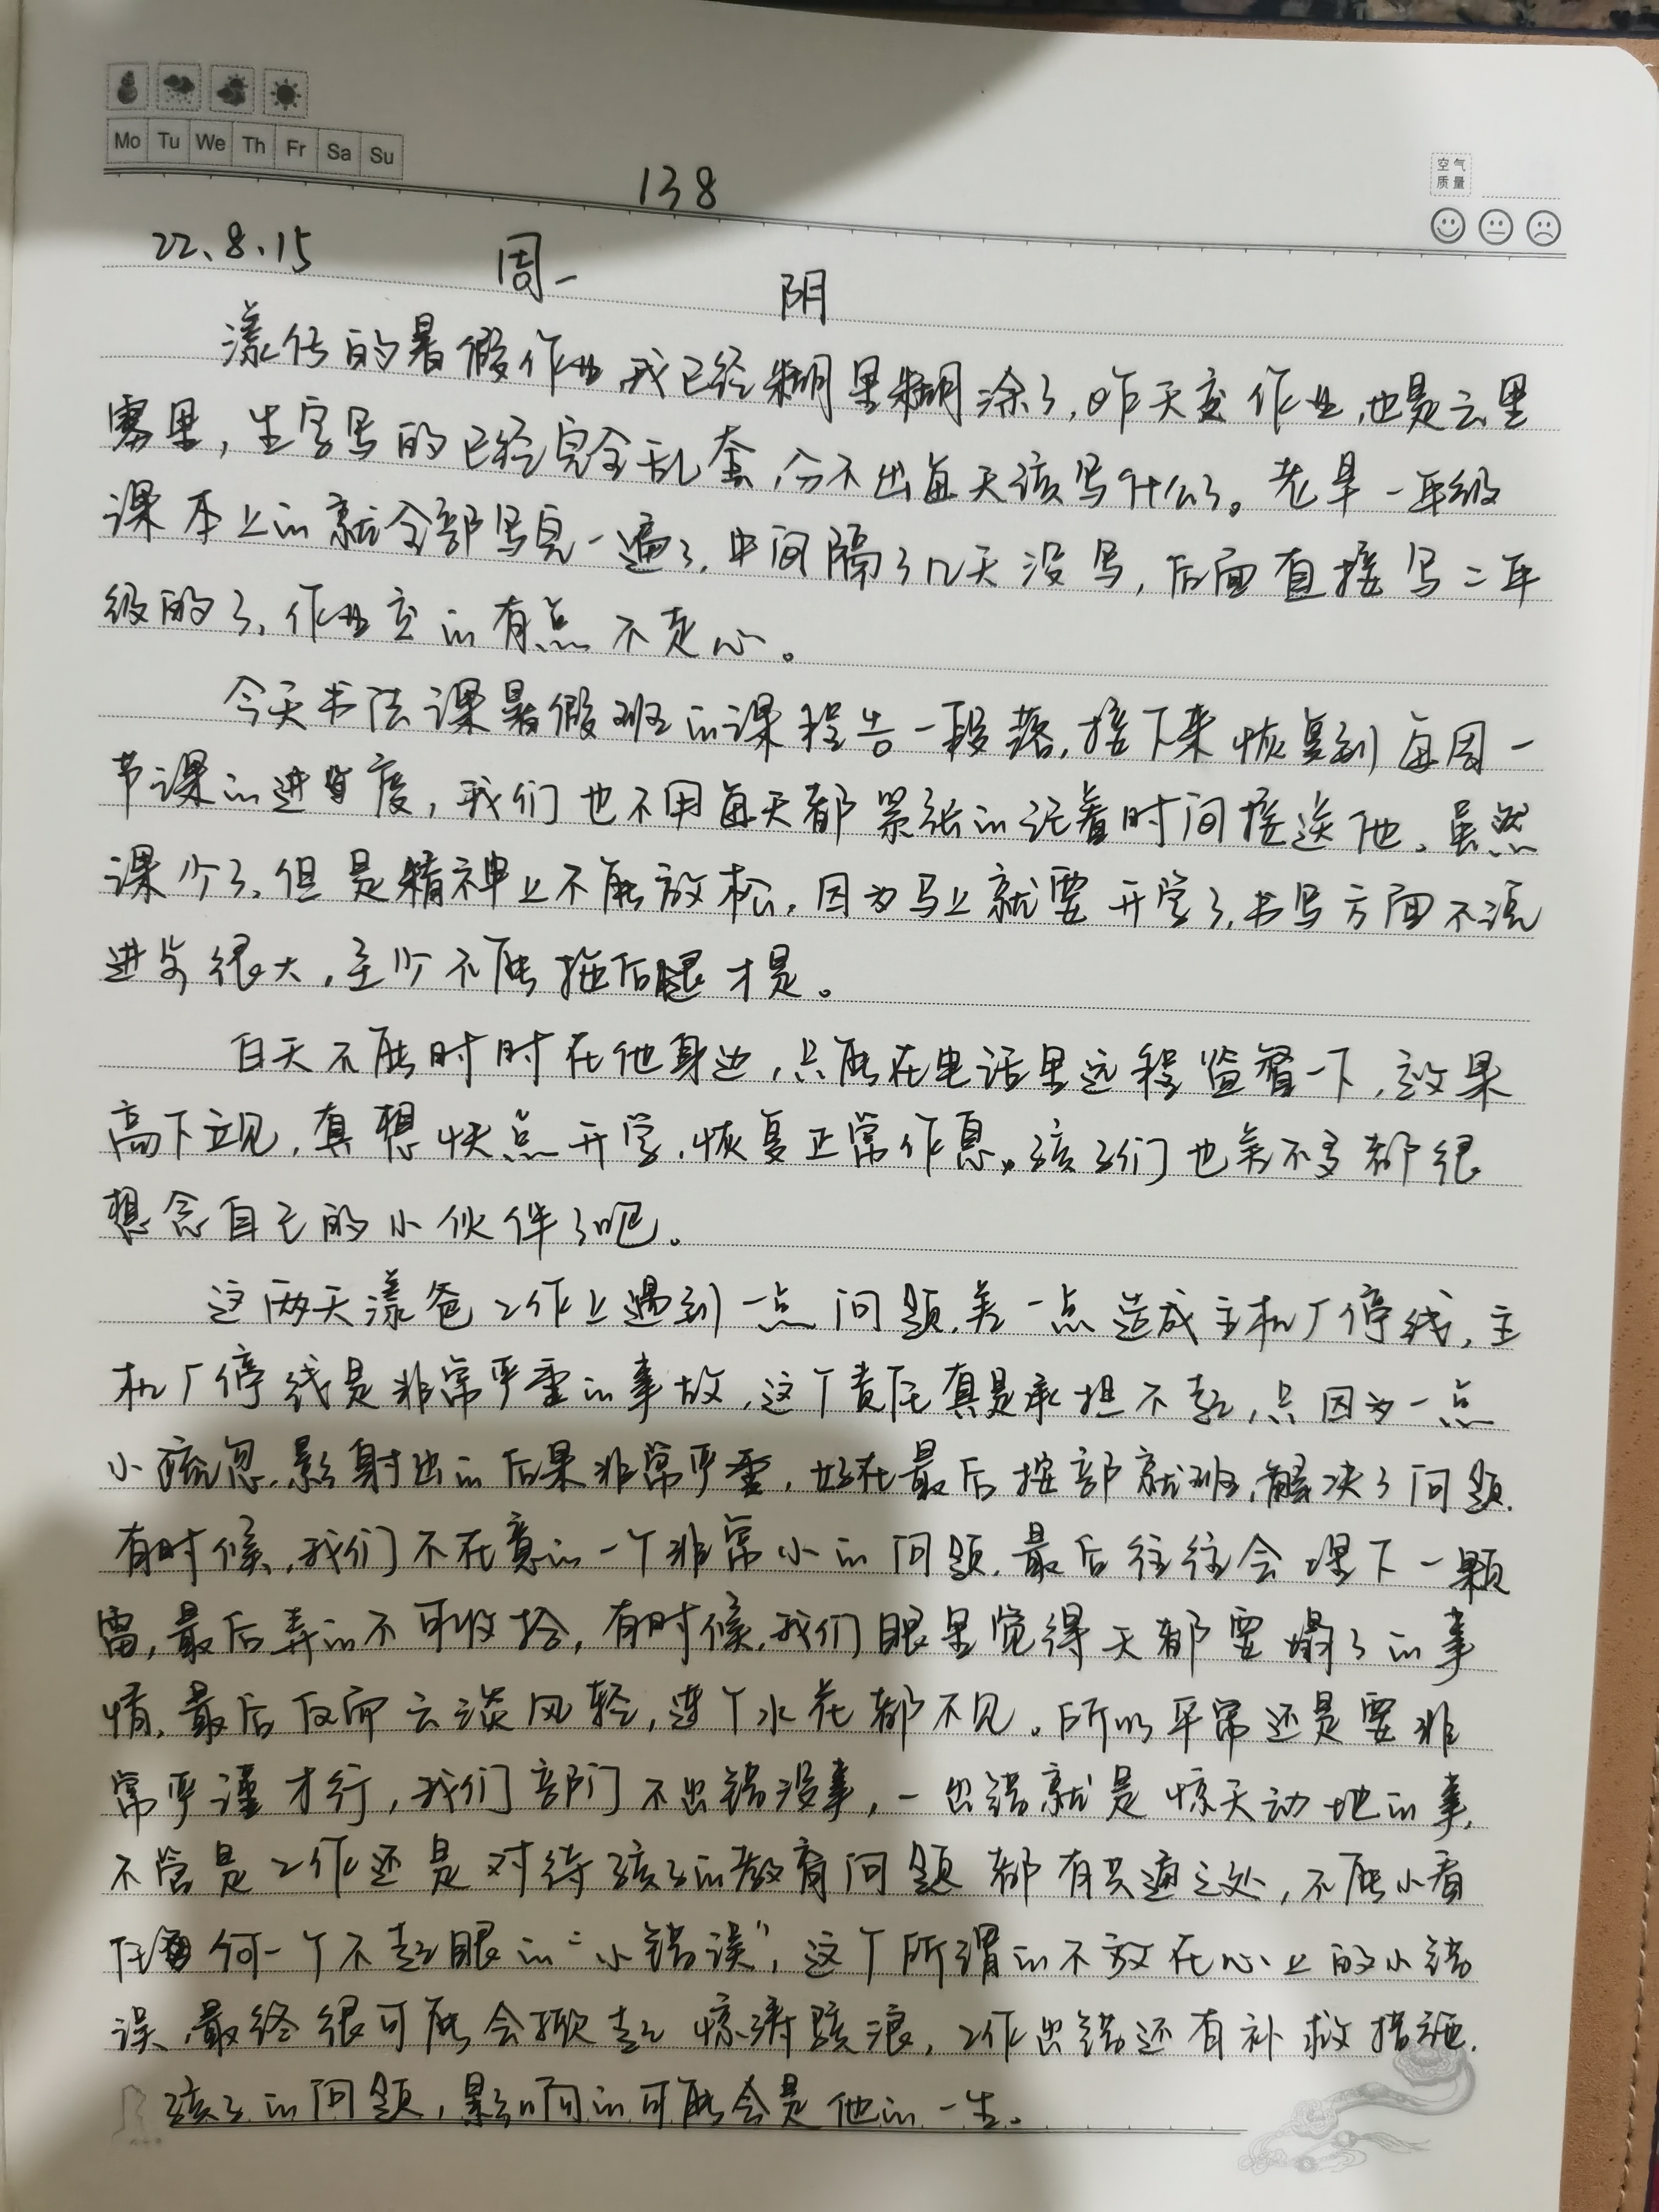 Mo Tu We Th Fr Sa Su
空气
质量
138
22.8.15 周一 阴
漾仔的暑假作业,我已经糊里糊涂了,昨天交作业,也是云里
雾里,生字写的已经完全乱套,分不出每天该写什么了。老早一年级
课本上的就全部写完一遍了,中间隔了几天没写,后面直接写二年
级的了,作业交的有点不走心。
今天书法课暑假班的课程告一段落,接下来恢复到每周一
节课的进度,我们也不用每天都紧张的记着时间接送他。虽然
课少了,但是精神上不能放松,因为马上就要开学了,书写方面不说
进步很大,至少不能拖后腿才是。
白天不能时时在他身边,只能在电话里远程监督一下,效果
高下立见,真想快点开学,恢复正常作息。孩子们也差不多都很
想念自己的小伙伴了吧。
这两天漾爸工作上遇到一点问题,差一点造成主机厂停线,主
机厂停线是非常严重的事故,这个责任真是承担不起,只因为一点
小疏忽,影射出的后果非常严重,好在最后按部就班,解决了问题.
有时候,我们不在意的一个非常小的问题,最后往往会埋下一颗
雷,最后弄的不可收拾,有时候,我们眼里觉得天都要塌了的事
情,最后反而云淡风轻,连个水花都不见。所以平常还是要非
常严谨才行,我们部门不出错没事,一出错就是惊天动地的事,
不管是工作还是对待孩子的教育问题都有共通之处,不能小看
任何一个不起眼的“小错误”,这个所谓的不放在心上的小错
误,最终很可能会掀起惊涛骇浪,工作出错还有补救措施.
孩子的问题,影响的可能会是他的一生。